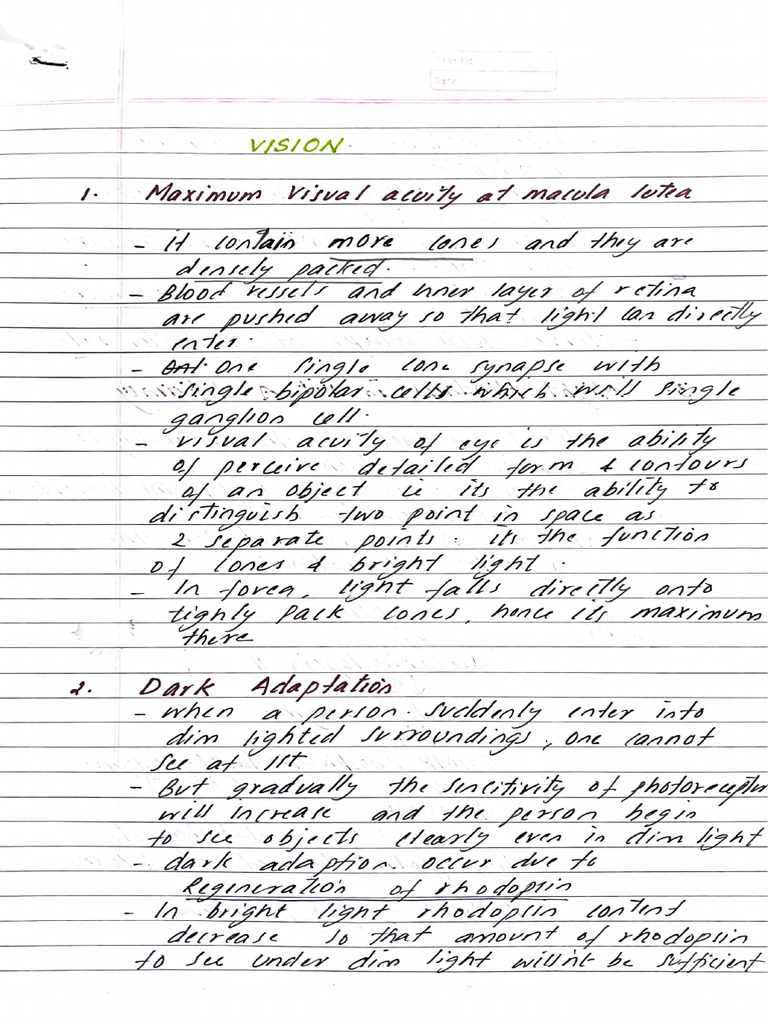 VISION.
1. Maximum Visual acuity at macula lutea
- It contain more cones and they are
densely packed.
- Blood vessels and inner layer of retina
are pushed away so that light can directly
enter.
- One single cone synapse with
single bipolar cells which will single
ganglion cell.
- visual acuity of eye is the ability
of perceive detailed form & contours
of an object ie its the ability to
distinguish two point in space as
2 separate points. its the function
of cones & bright light.
- In fovea, light falls directly onto
tighly pack cones, hence its maximum
there
2. Dark Adaptation
- when a person suddenly enter into
dim lighted surroundings, one cannot
see at 1st
- But gradually the sencitivity of photoreceptor
will increase and the person begin
to see objects clearly even in dim light
- dark adaption occur due to
Regeneration of rhodopsin
- In bright light rhodopsin content
decrease so that amount of rhodopsin
to see under dim light will nt be sufficient